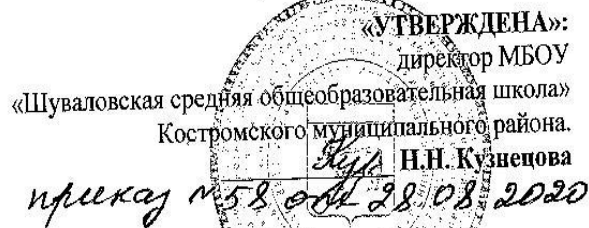 «УТВЕРЖДЕНА»:
директор МБОУ
«Шуваловская средняя общеобразовательная школа»
Костромского муниципального района.
Н.Н. Кузнецова
приказ №58 от 28.08.2020